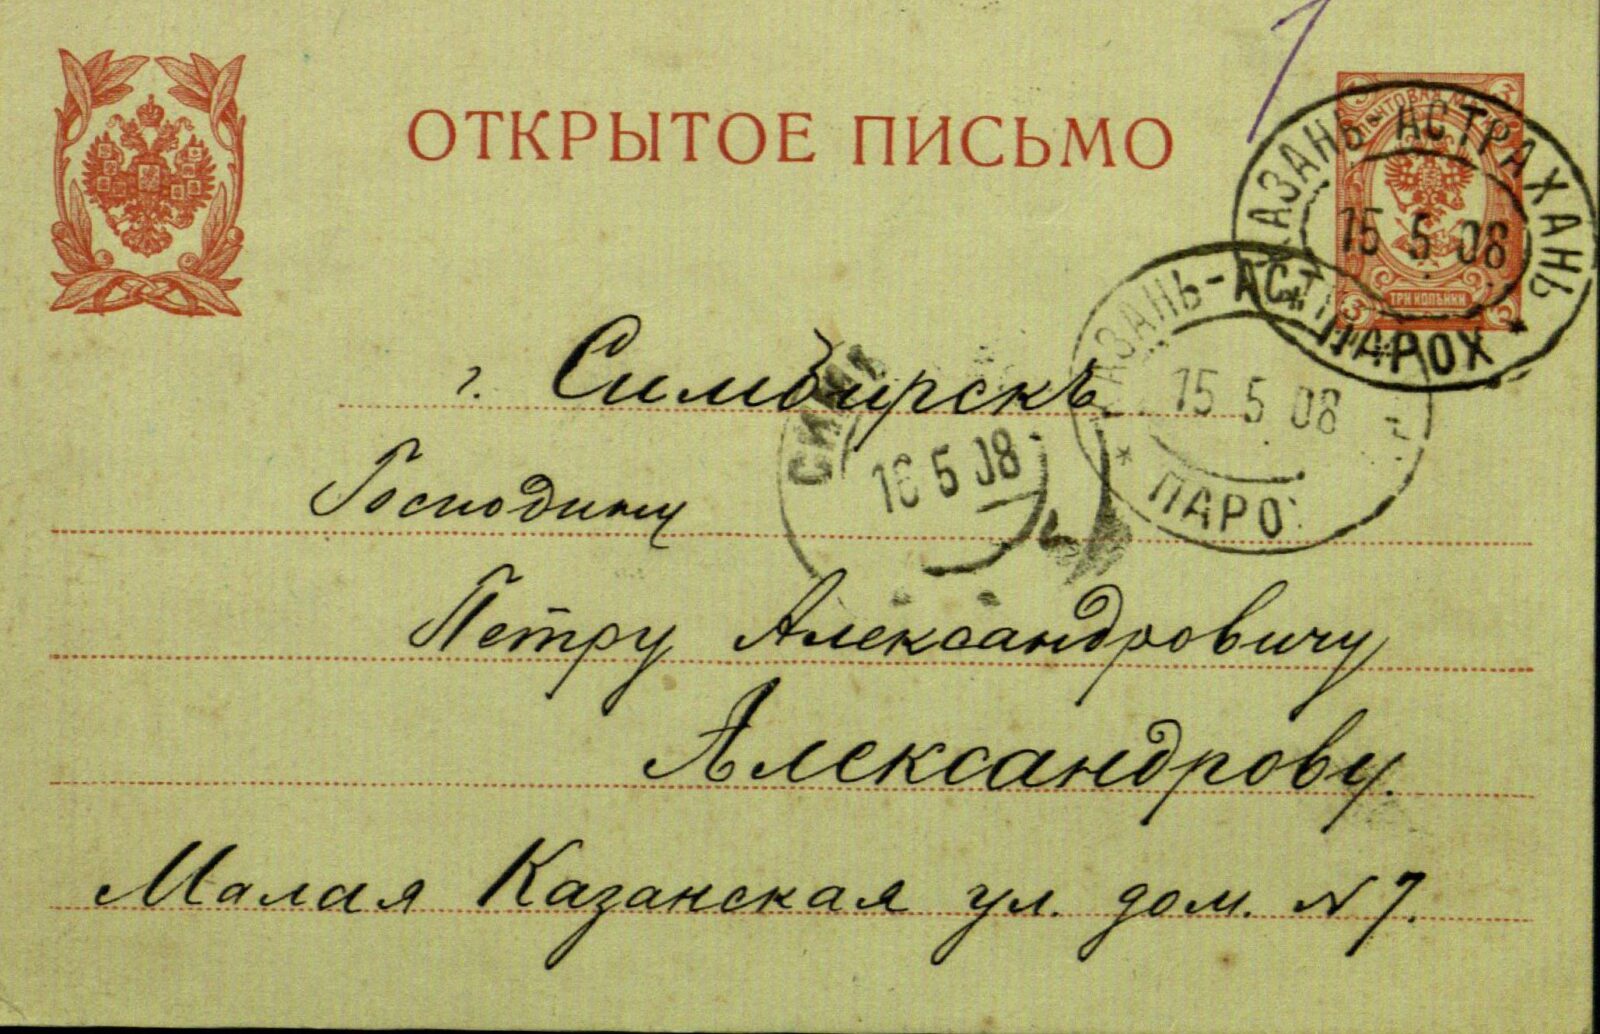 ОТКРЫТОЕ ПИСЬМО
КАЗАНЬ-АСТРАХАНЬ
15 5 08
* ПАРОХ *
ТРИ КОПѢЙКИ
АЗАНЬ-АСТ
15 5 08
* ПАРО
СИМ
16 5 08
г. Симбирскъ
Господину
Петру Александровичу
Александрову.
Малая Казанская ул. дом. № 7.